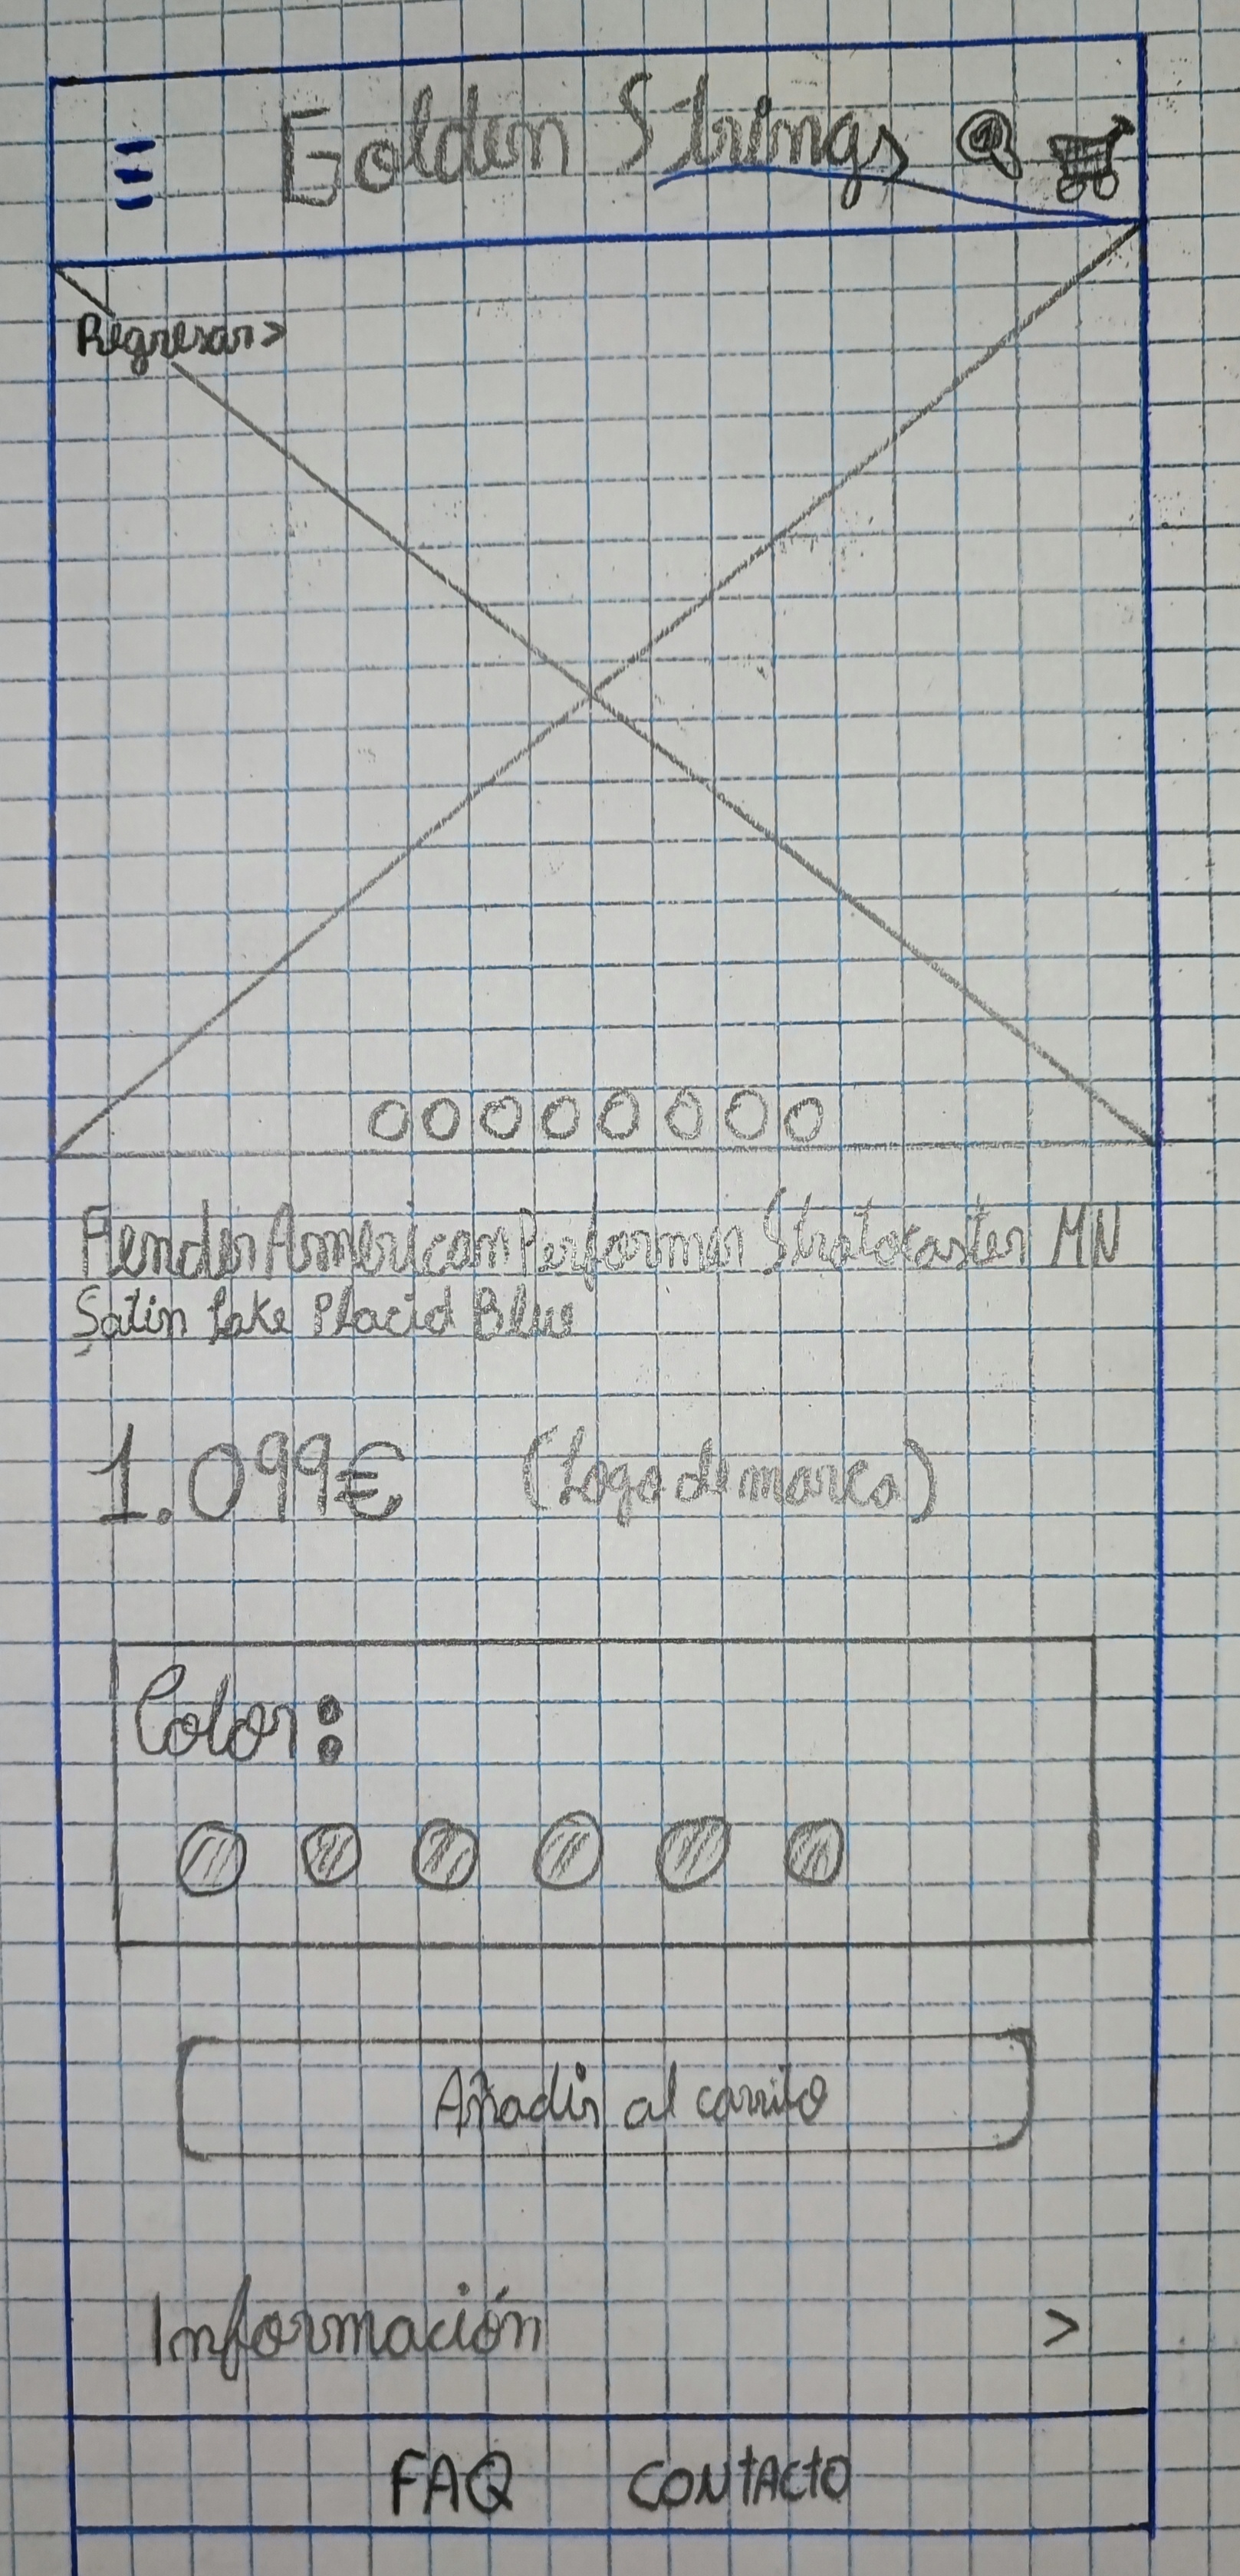 Golden Strings
Regresar >
Fender American Performer Stratocaster MN
Satin Lake Placid Blue
1.099€ (Logo de marca)
Color:
Añadir al carrito
Información >
FAQ CONTACTO